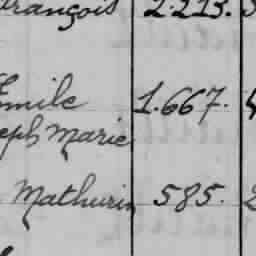 François 2.213.
Emile 1.667.
eph Marie
Mathurin 585.